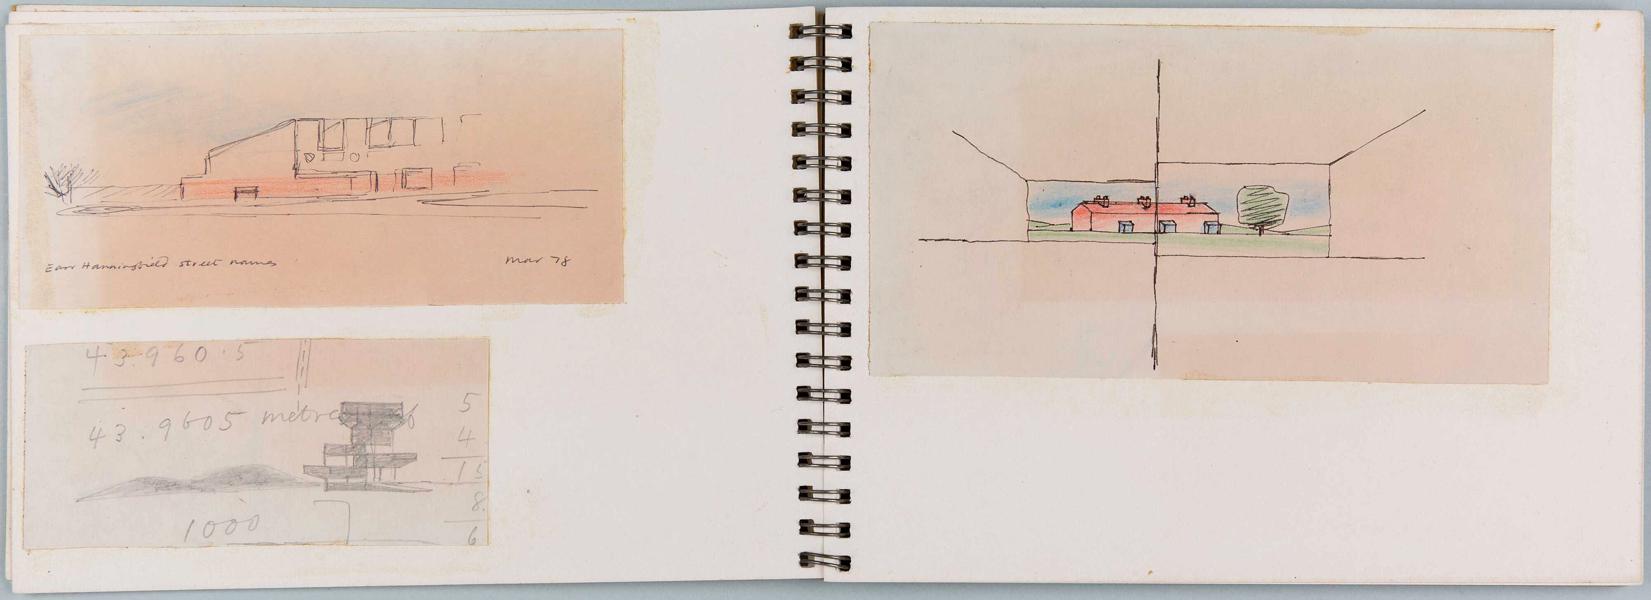 East Hanningfield street names
Mar 78
43.960.5
43.9605 metres
5
4
15
8
6
1000